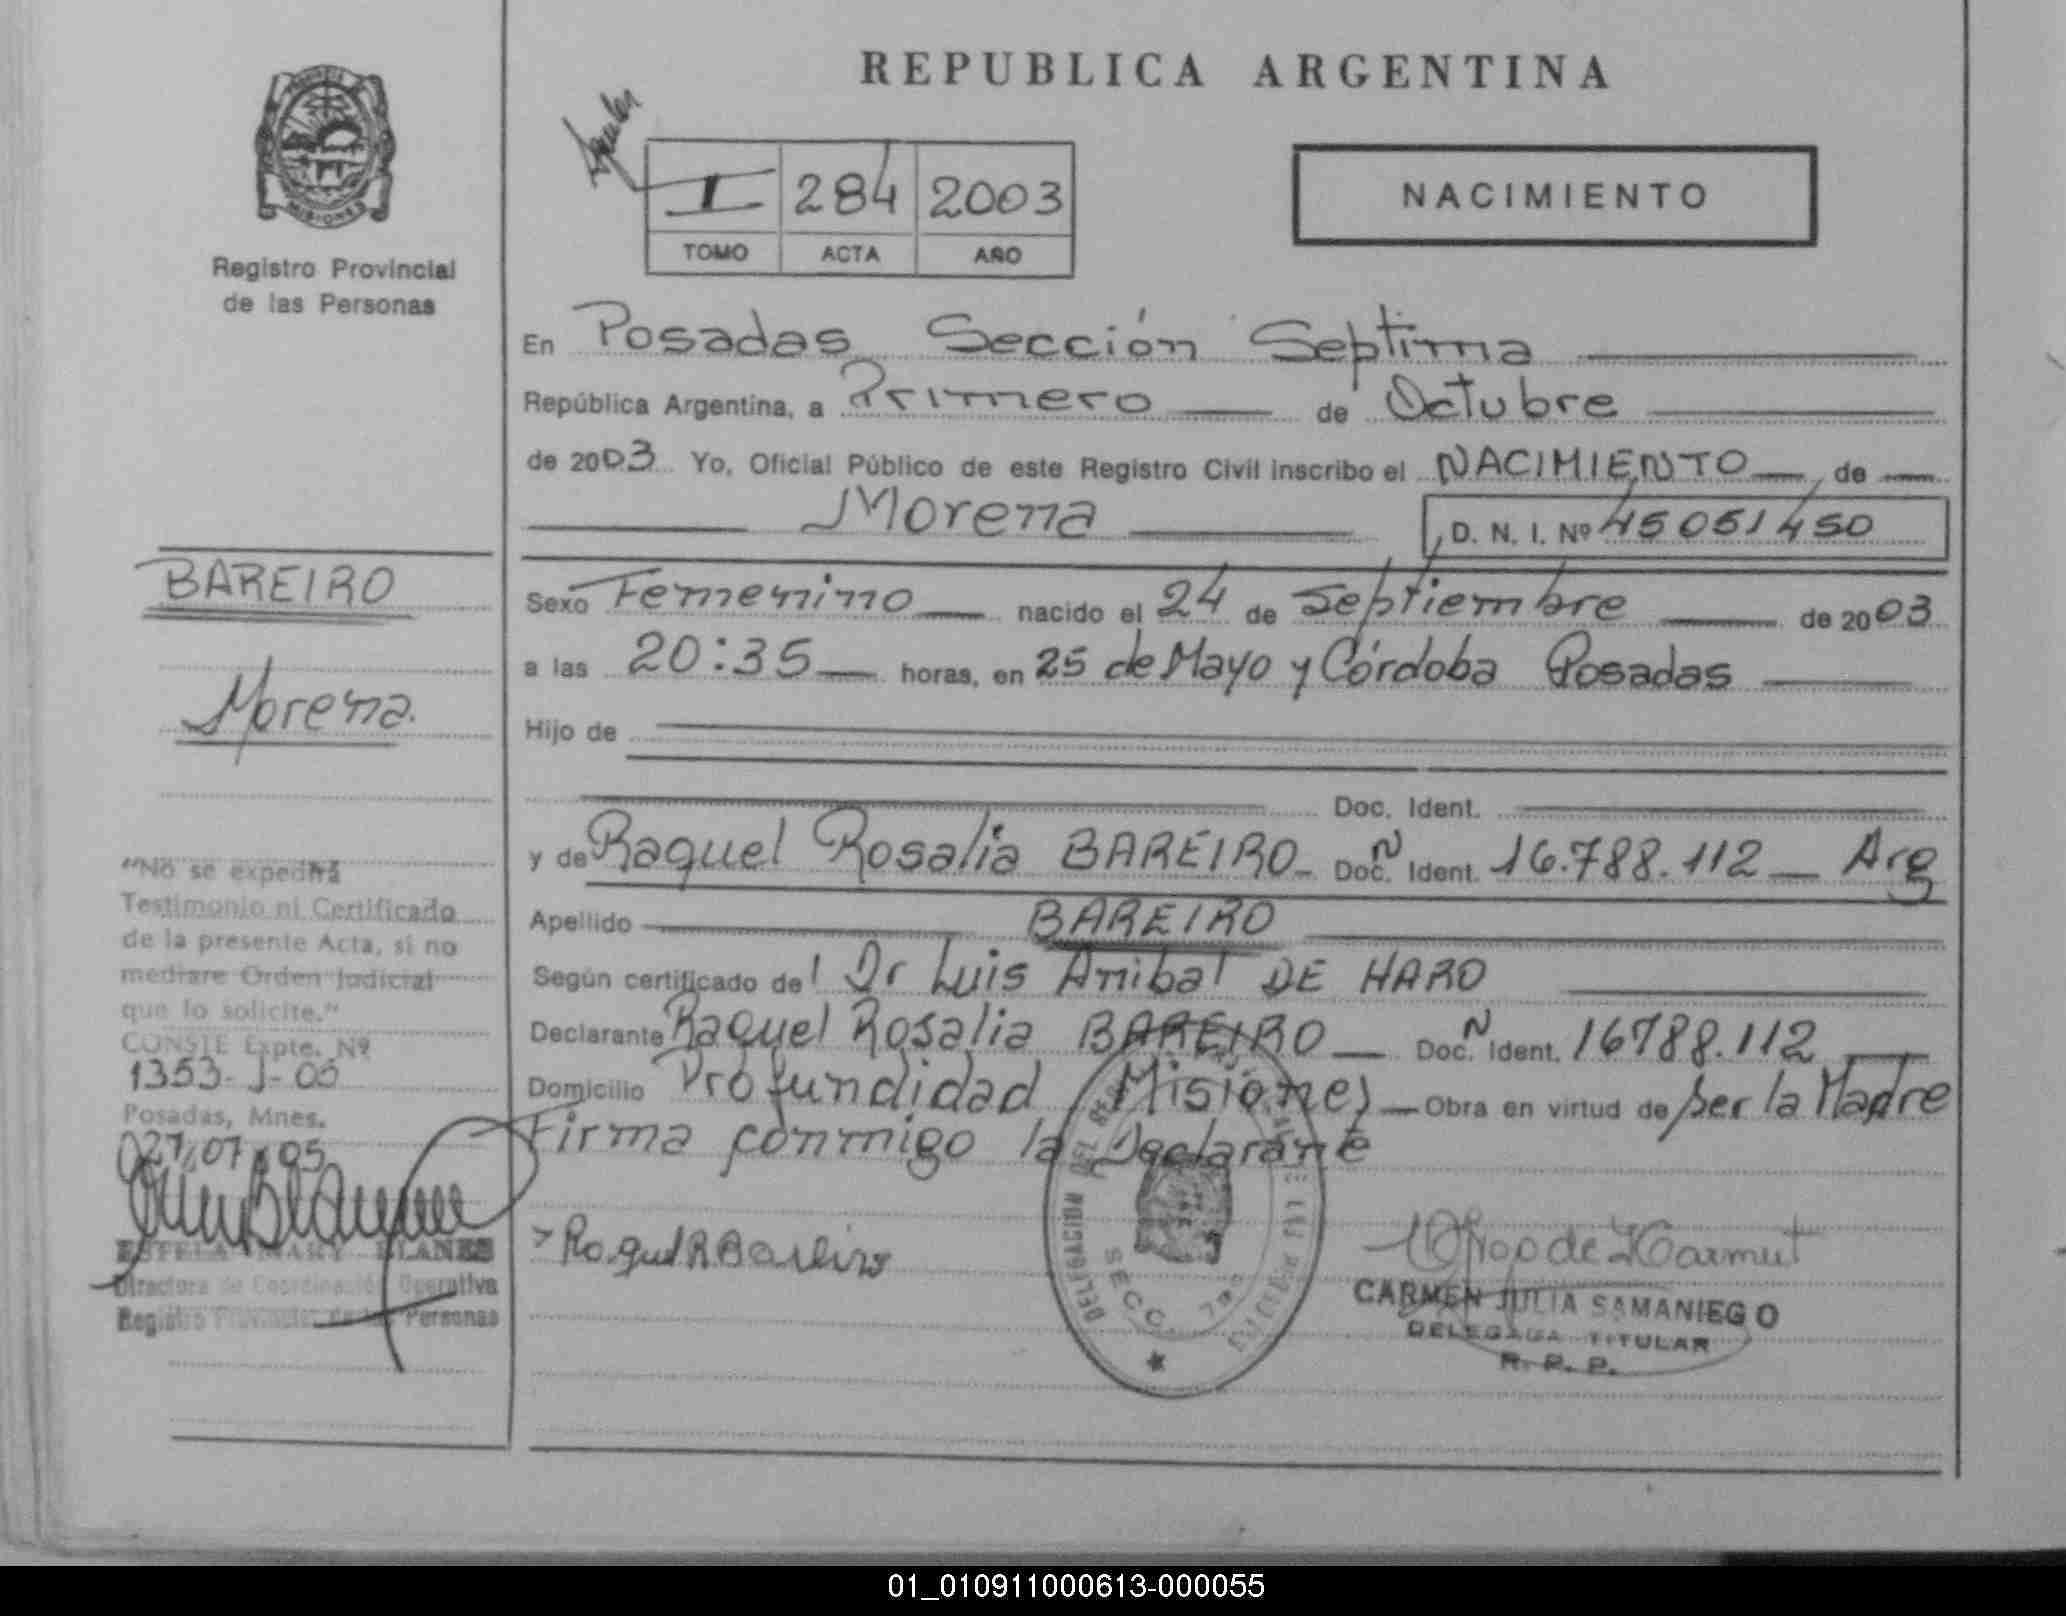 REPUBLICA ARGENTINA
MISIONES
Registro Provincial
de las Personas
I 284 2003
TOMO ACTA AÑO
NACIMIENTO
En Posadas Sección Septima
República Argentina, a Primero de Octubre
de 2003 Yo, Oficial Público de este Registro Civil inscribo el NACIMIENTO de
Morena D. N. I. Nº 45051450
Sexo Femenino nacido el 24 de Septiembre de 2003
a las 20:35 horas, en 25 de Mayo y Córdoba Posadas
Hijo de
Doc. Ident.
y de Raquel Rosalia BAREIRO Doc. N Ident. 16.788.112 Arg
Apellido BAREIRO
Según certificado del Dr Luis Anibal DE HARO
Declarante Raquel Rosalia BAREIRO Doc. N Ident. 16788.112
Domicilio Profundidad Misiones Obra en virtud de ser la Madre
Firma conmigo la Declarante
Raquel R Bareiro
CARMEN JULIA SAMANIEGO
DELEGADA TITULAR
R. P. P.
DELEGACION DEL
SECC. 7ma
BAREIRO
Morena.
"No se expedirá
Testimonio ni Certificado
de la presente Acta, si no
mediare Orden Judicial
que lo solicite."
CONSTE Expte. Nº
1353-J-05
Posadas, Mnes.
27/07/05
ESTELA MARY BLANES
Directora de Coordinación Operativa
Registro Provincial de las Personas
01_010911000613-000055